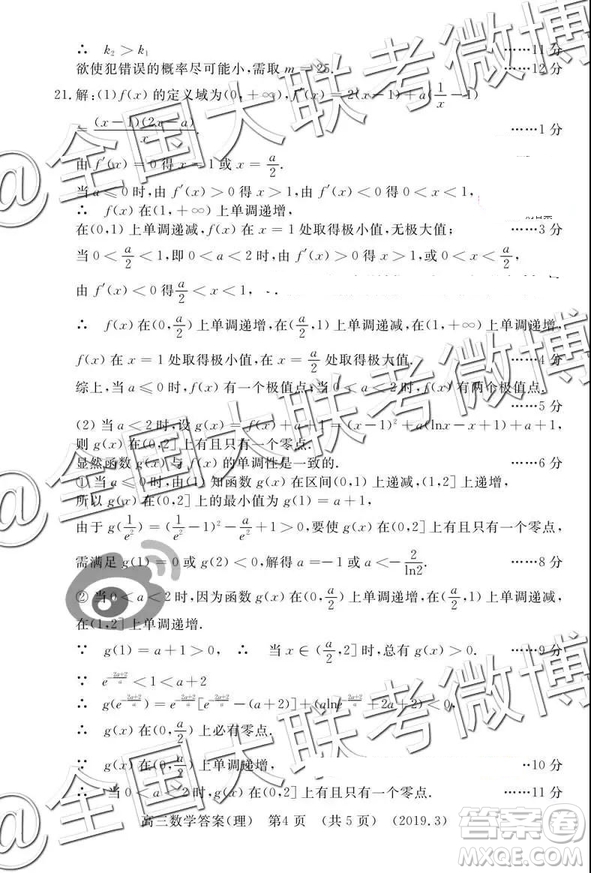 ∴ k₂>k₁ ……11分
欲使犯错误的概率尽可能小,需取m=25. ……12分
21.解:(1)f(x)的定义域为(0,+∞),f′(x)=2(x-1)+a(1/x-1)
=(x-1)(2x-a)/x ……1分
由f′(x)=0得x=1或x=a/2.
当a⩽0时,由f′(x)>0得x>1,由f′(x)<0得0<x<1,
∴ f(x)在(1,+∞)上单调递增,
在(0,1)上单调递减,f(x)在x=1处取得极小值,无极大值; ……3分
当0<a/2<1,即0<a<2时,由f′(x)>0得x>1,或0<x<a/2,
由f′(x)<0得a/2<x<1,
∴ f(x)在(0,a/2)上单调递增,在(a/2,1)上单调递减,在(1,+∞)上单调递增,
f(x)在x=1处取得极小值,在x=a/2处取得极大值. ……4分
综上,当a⩽0时,f(x)有一个极值点;当0<a<2时,f(x)有两个极值点.
……5分
(2)当a<2时,设g(x)=f(x)+a+1=(x-1)²+a(lnx-x+1)+a+1,
则g(x)在(0,2]上有且只有一个零点.
显然函数g(x)与f(x)的单调性是一致的. ……6分
①当a⩽0时,由(1)知函数g(x)在区间(0,1)上递减,(1,2]上递增,
所以g(x)在(0,2]上的最小值为g(1)=a+1,
由于g(1/e²)=(1/e²-1)²-a/e²+1>0,要使g(x)在(0,2]上有且只有一个零点,
需满足g(1)=0或g(2)<0,解得a=-1或a<-2/ln2. ……8分
②当0<a<2时,因为函数g(x)在(0,a/2)上单调递增,在(a/2,1)上单调递减,
在(1,2]上单调递增.
∵ g(1)=a+1>0, ∴ 当x∈(a/2,2]时,总有g(x)>0. ……9分
<1<a+2
[ -(a+2)]+(alne +2a+2)<0
∴ g(x)在(0,a/2)上必有零点.
∵ g(x)在(0,a/2)上单调递增, ··10分
∴ 当0<a<2时,g(x)在(0,2]上有且只有一个零点. ……11分
高三数学答案(理) 第4页 (共5页) (2019.3)
@全国大联考微博
@全国大联考微博
@全国大联考微博
答案圈
MXQE.COM